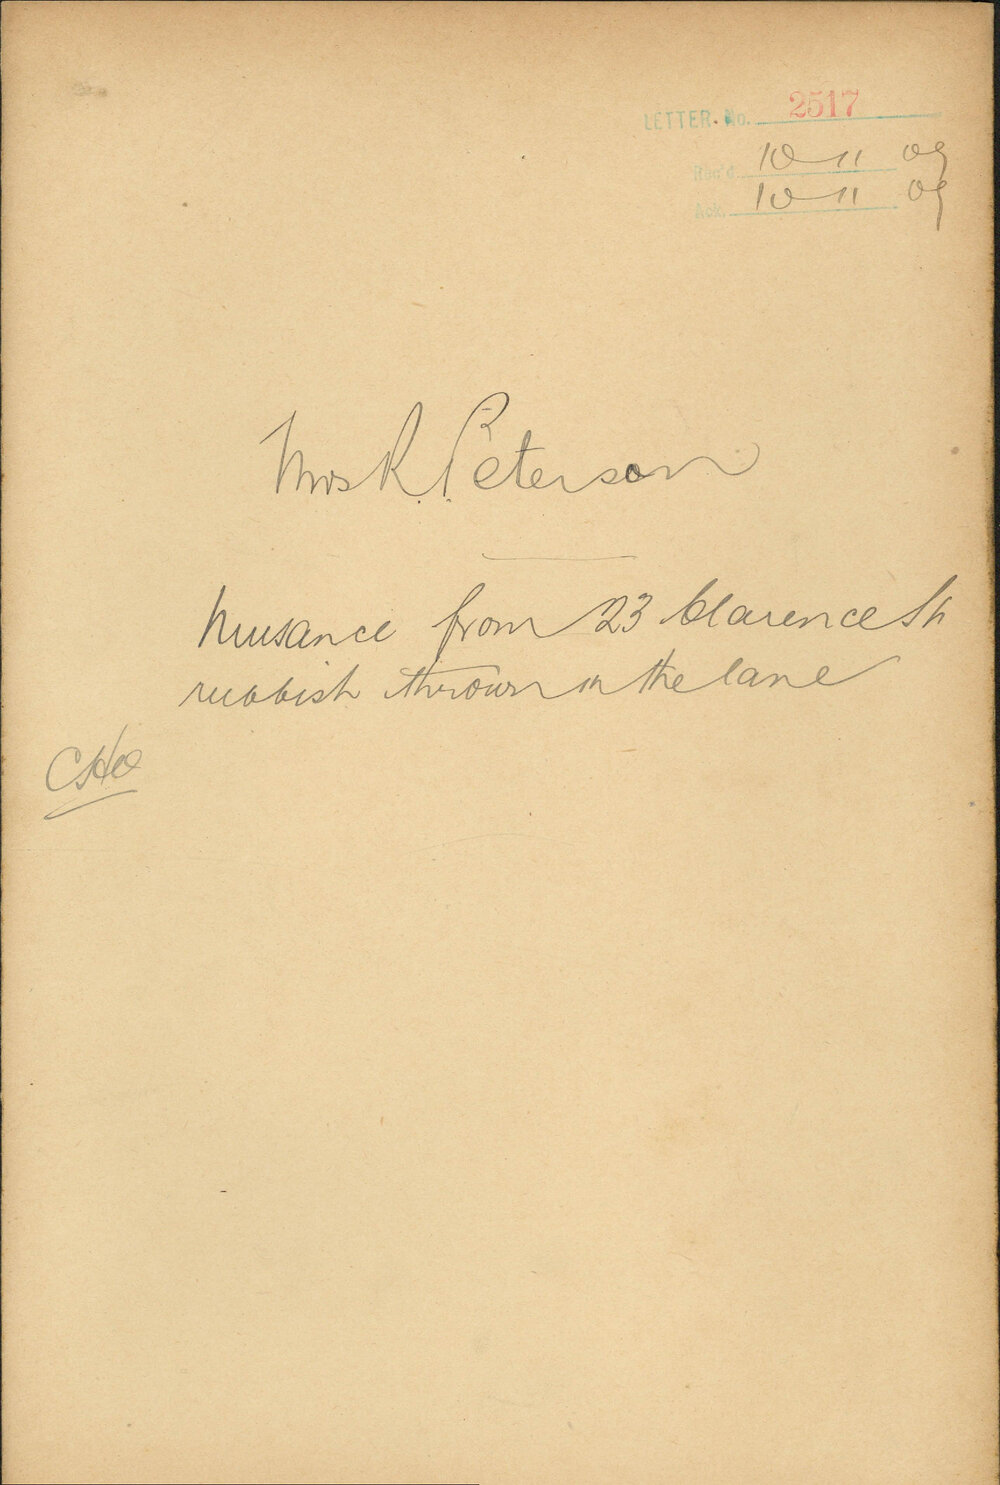 LETTER. No. 2517
Rec'd. 10 - 11 09
Ack. 10 - 11 09
Mrs K. Peterson
Nuisance from 23 Clarence St
rubbish thrown in the lane